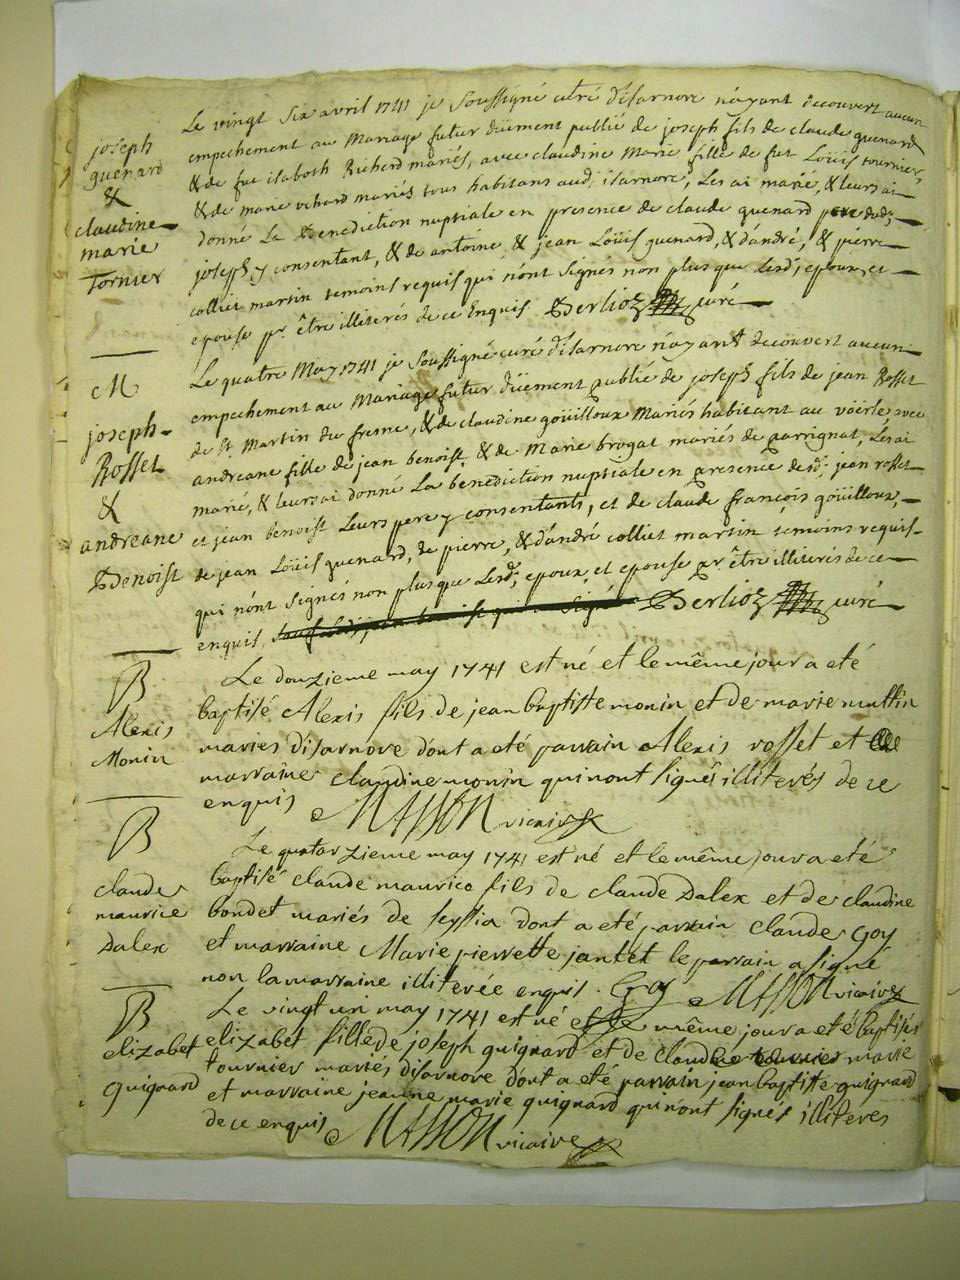 joseph
guenard
&
claudine
marie
Tornier
Le vingt six avril 1741 je soussigné curé d'isarnore n'ayant decouvert aucun
empechement au Mariage futur düement publié de joseph fils de claude guenard
& de fue isaboth Richerd mariés, avec claudine Marie fille de fut Loüis tournier,
& de marie richard mariés tous habitans aud; isarnore, Les ai marié, & leurs ai
donné La Benediction nuptiale en presence de claude guenard pere dud;
joseph y consentant, & de antoine & jean Loüis guenard, & d'andré, & pierre
colliet martin temoins requis qui n'ont signés non plus que Lesd; epoux, et
epouse pr. être illiterés de ce Enquis Berlioz curé
M
joseph
Rosset
&
andreane
Benoist
Le quatre May 1741 je soussigné curé d'isarnore n'ayant decouvert aucun
empechement au Mariage futur düement publié de joseph fils de jean Rosset
de st. Martin du fresne, & de claudine goüilloux Mariés habitant au voërle avec
andreane fille de jean benoist & de Marie brogat mariés de parrignat, Lésai
marié, & leursai donné La benediction nuptiale en presence desd; jean rosset
et jean benoist Leurs pere y consentants, et de claude françois goüilloux,
de jean Loüis guenard, de pierre, & d'andré colliet martin temoins requis
qui n'ont signés non plus que Lesd; epoux, et epouse pr être illiterés de ce
enquis Berlioz curé
B
Alexis
Monin
Le douzieme may 1741 est né et le même jour a eté
baptisé Alexis fils de jean baptiste monin et de marie muttin
maries disarnore dont a eté parrain Alexis rosset et
marraine claudine monin qui nont signés illiterés de ce
enquis MASSON vicaire
B
claude
maurice
Dalex
Le quatorzieme may 1741 est né et le même jour a eté
baptisé claude maurice fils de claude Dalex et de claudine
bondet mariés de seyssia dont a eté parrain claude Goy
et marraine Marie pierrette jantet le parrain a signé
non la marraine illiterée enquis. Goy MASSON vicaire
B
elizabet
guignard
Le vingt un may 1741 est né et le même jour a eté baptisés
elizabet fille de joseph guignard et de claudine marie
tournier mariés disarnore dont a eté parrain jean baptiste guignard
et marraine jeanne marie guignard qui n'ont signés illiteres
de ce enquis MASSON vicaire